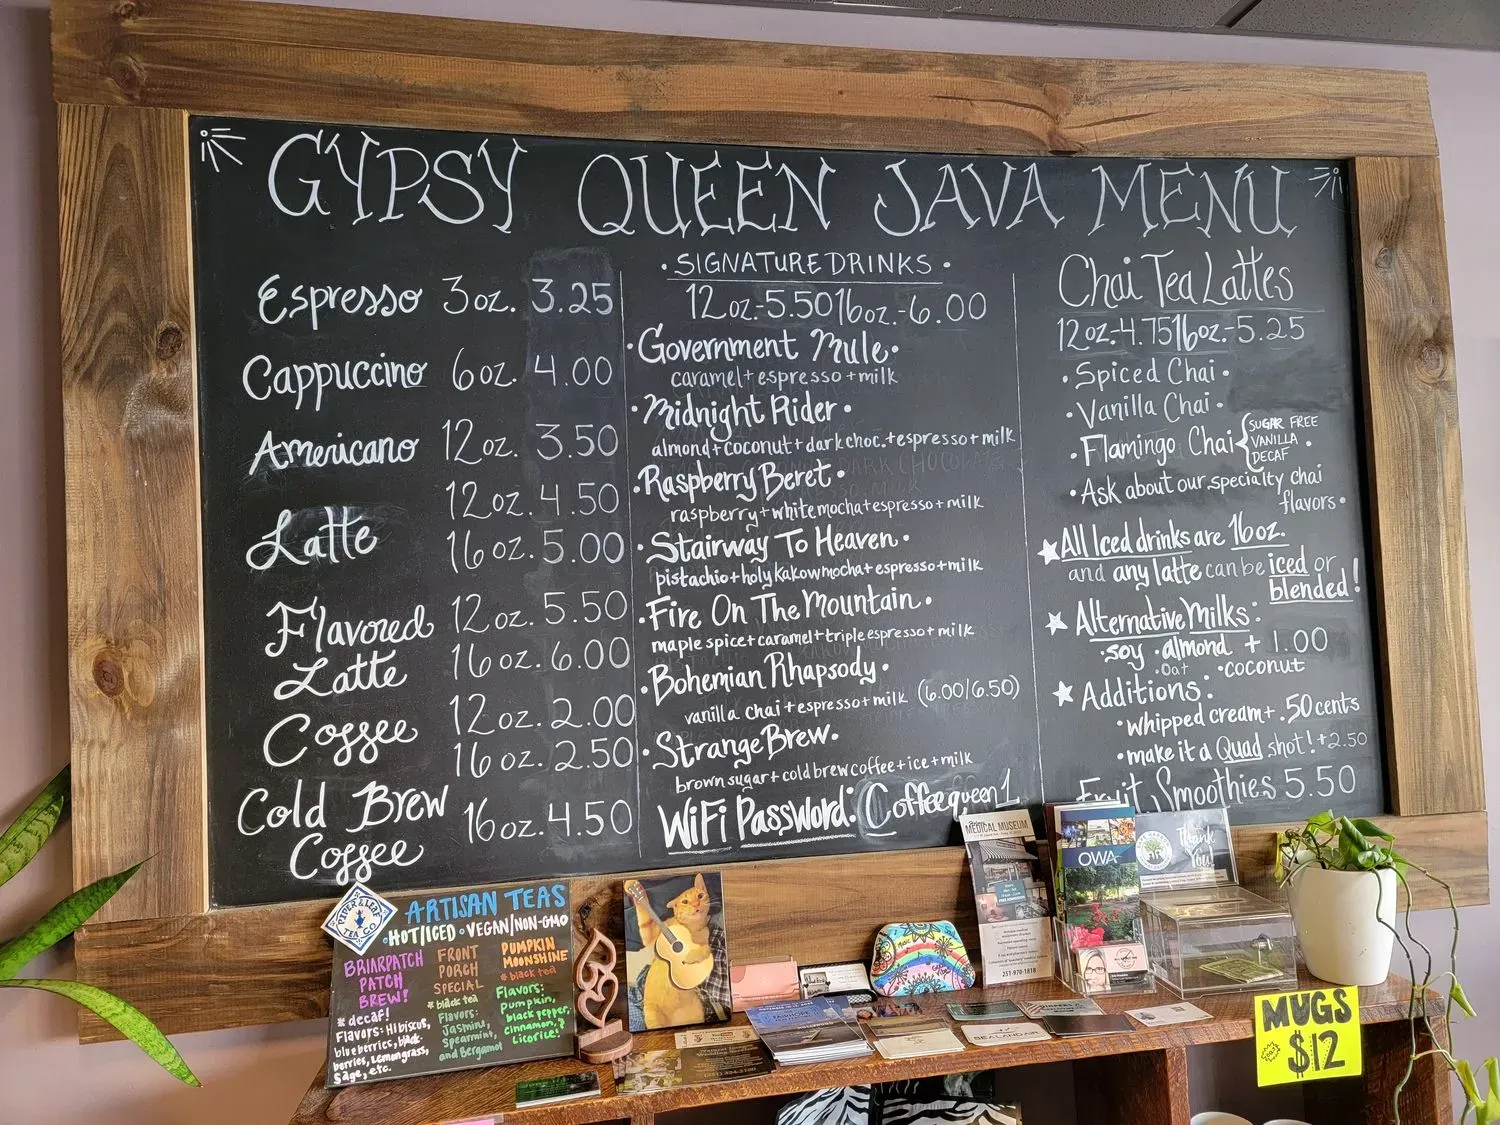 GYPSY QUEEN JAVA MENU
Espresso 3oz. 3.25
Cappuccino 6oz. 4.00
Americano 12oz. 3.50
Latte
12oz. 4.50
16oz. 5.00
Flavored
Latte
12oz. 5.50
16oz. 6.00
Coffee
12oz. 2.00
16oz. 2.50
Cold Brew
Coffee
16oz. 4.50
• SIGNATURE DRINKS •
12oz.-5.50 16oz.-6.00
• Government Mule •
caramel + espresso + milk
• Midnight Rider •
almond + coconut + dark choc. + espresso + milk
• Raspberry Beret •
raspberry + white mocha + espresso + milk
• Stairway To Heaven •
pistachio + holy kakow mocha + espresso + milk
• Fire On The Mountain •
maple spice + caramel + triple espresso + milk
• Bohemian Rhapsody •
vanilla chai + espresso + milk (6.00/6.50)
• Strange Brew •
brown sugar + cold brew coffee + ice + milk
WiFi Password: Coffeequeen1
Chai Tea Lattes
12oz.-4.75 16oz.-5.25
• Spiced Chai •
• Vanilla Chai •
• Flamingo Chai { SUGAR FREE
VANILLA •
DECAF
• Ask about our specialty chai
flavors •
★ All Iced drinks are 16oz.
and any latte can be iced or
blended!
★ Alternative Milks:
• soy • almond + 1.00
• Oat • coconut
★ Additions:
• whipped cream + .50 cents
• make it a Quad shot! + 2.50
Fruit Smoothies 5.50
PIPER & LEAF
TEA CO.
ARTISAN TEAS
• HOT/ICED • VEGAN/NON-GMO
BRIARPATCH
PATCH
BREW!
* decaf!
Flavors: Hibiscus,
blueberries, black-
berries, Lemongrass,
Sage, etc.
FRONT
PORCH
SPECIAL
* black tea
Flavors:
Jasmine,
Spearmint,
and Bergamot
PUMPKIN
MOONSHINE
* black tea
Flavors:
Pumpkin,
black pepper,
cinnamon, &
Licorice!
MEDICAL MUSEUM
251-970-1818
OWA
Thank
You!
MUGS
$12